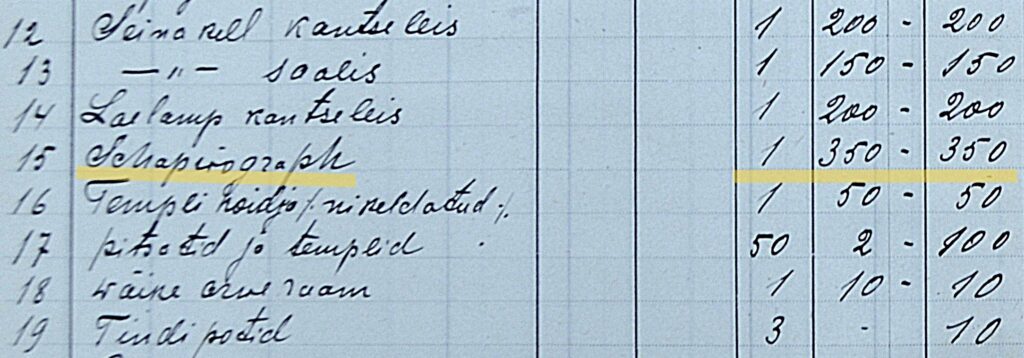 12 Seinakell kantseleis 1 200 - 200
13 —„— saalis 1 150 - 150
14 Laelamp kantseleis 1 200 - 200
15 Schapirograph 1 350 - 350
16 Templi hoidja /. nikeldatud ./. 1 50 - 50
17 pitsatid ja templid 50 2 - 100
18 väike arve raam 1 10 - 10
19 Tindi potid 3 - 10